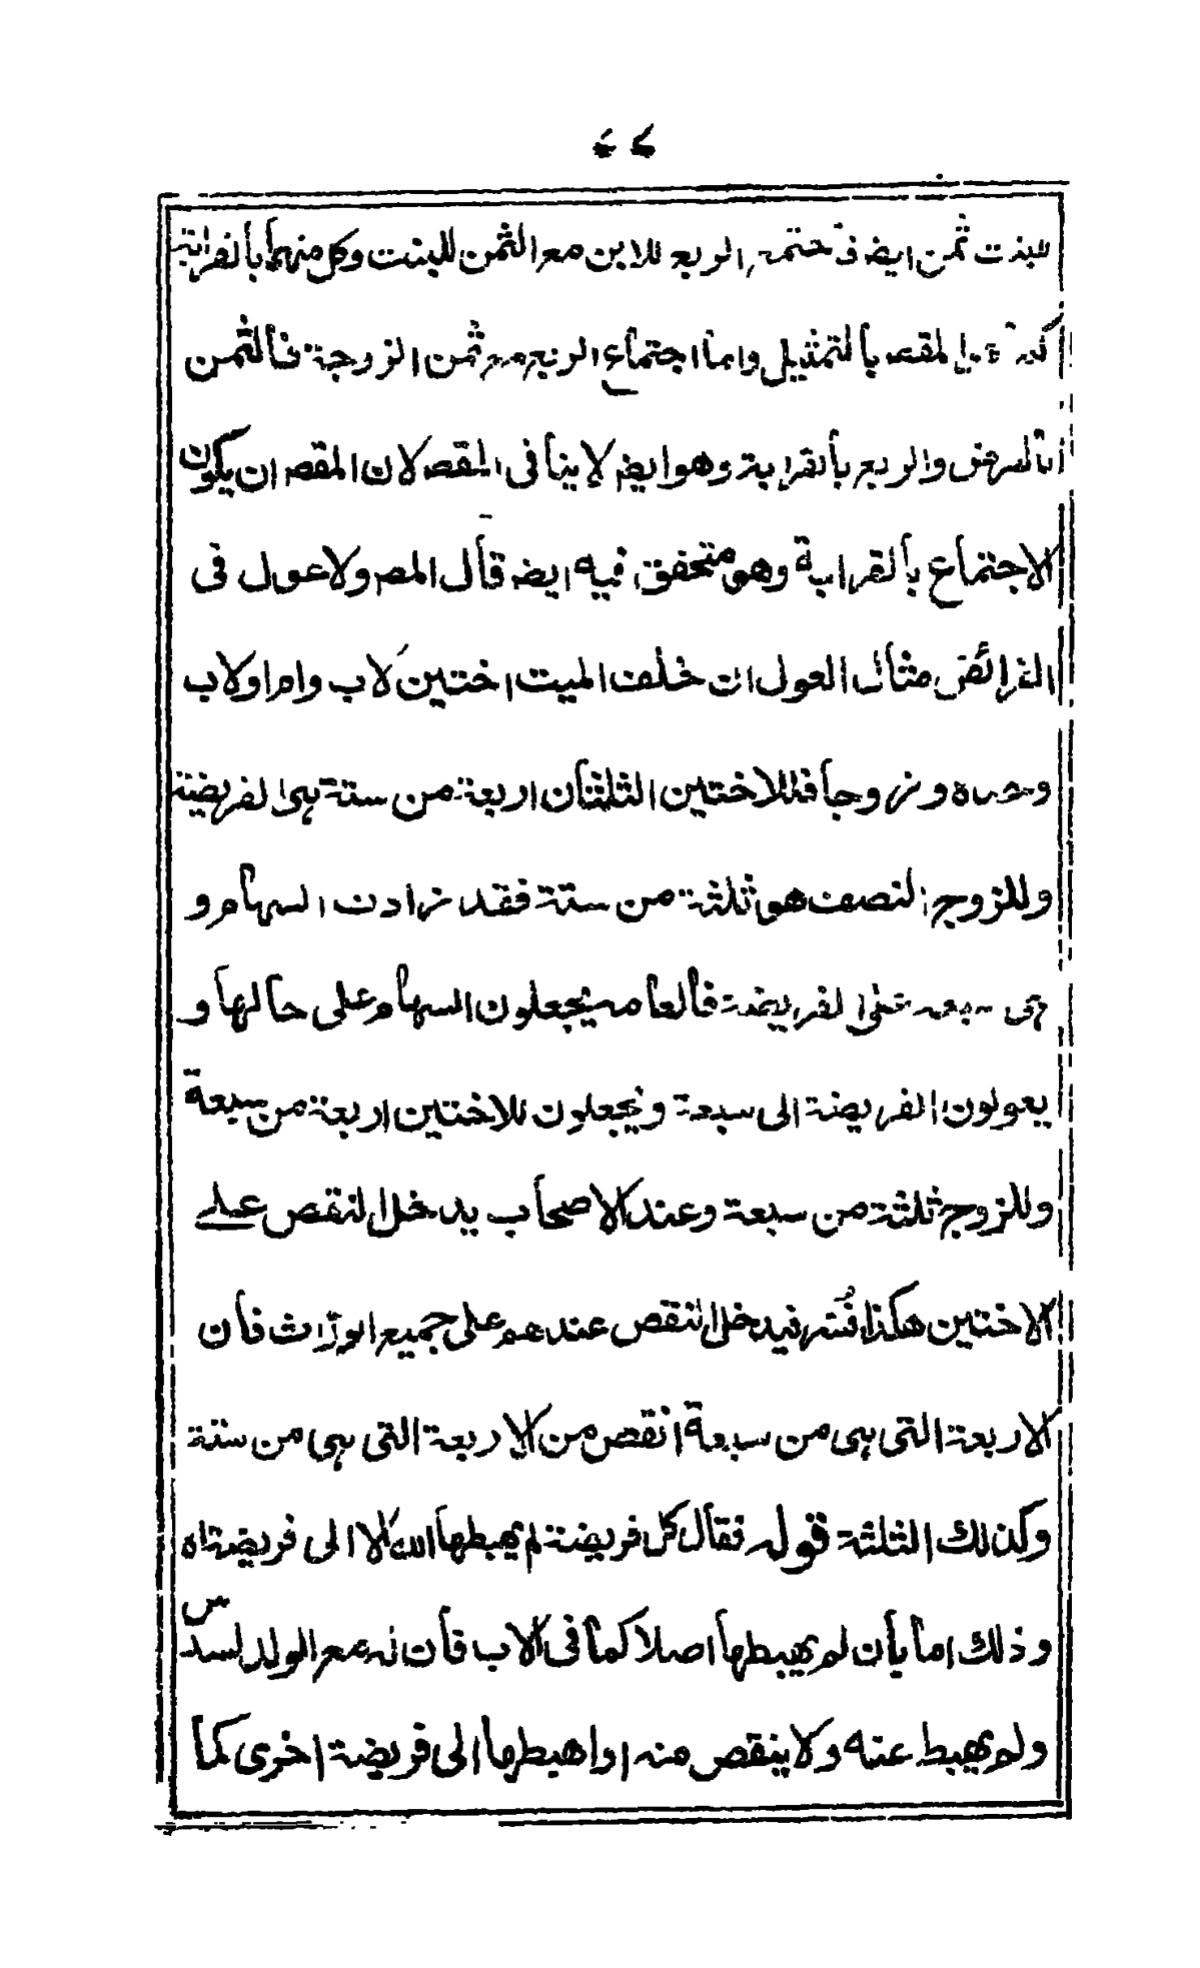 للبنت ثمن ايضه الربع للابن مع الثمن للبنت وكل منهما بالقرابة
المقصه بالتمثيل واما اجتماع الربع مع ثمن الزوجة فالثمن
والربع بالقرابة وهو ايضه لا ينافى المقصه لان المقصه ان يكون
الاجتماع بالقرابة وهو متحقق فيه ايضه قال المصه ولا عول فى
الفرائض مثال العول ان خلف الميت اختين لاب وام او لاب
وحده وزوجا فللاختين الثلثان اربعة من ستة هى الفريضة
وللزوج النصف هو ثلثة من ستة فقد زادت السهام و
هى سبعه على الفريضة فالعامه يجعلون السهام على حالها و
يعولون الفريضة الى سبعة ويجعلون للاختين اربعة من سبعة
وللزوج ثلثة من سبعة وعند الاصحاب يدخل النقص على
الاختين هكذا فيدخل النقص عندهم على جميع الوراث فان
الاربعة التى هى من سبعة انقص من الاربعة التى هى من ستة
وكذلك الثلثة قوله فقال كل فريضة لم يهبطها الله الا الى فريضة اه
وذلك اما بان لم يهبطها اصلا كما فى الاب فان له مع الولد السدس
ولم يهبط عنه ولا ينقص منه او اهبطها الى فريضة اخرى كما